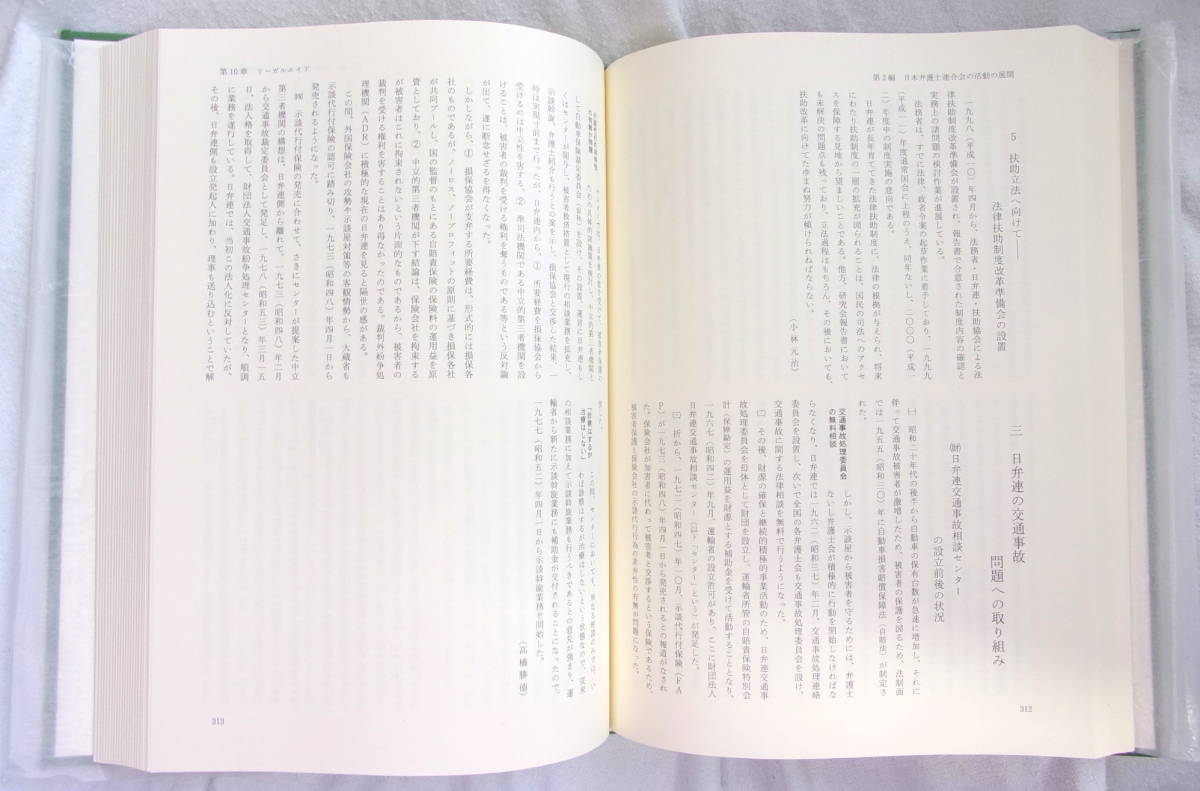 第2編　日本弁護士連合会の活動の展開
5　扶助立法へ向けて――
法律扶助制度改革準備会の設置
一九九八（平成一〇）年四月から、法務省・日弁連・扶助協会による法
律扶助制度改革準備会が設置され、報告書で合意された制度内容の確認と
実務上の諸問題の検討作業が進展している。
法務省は、すでに法律、政省令案の起草作業に着手しており、一九九九
（平成一一）年度通常国会に上程のうえ、同年ないし、二〇〇〇（平成一
二）年度中の制度実施の意向である。
日弁連が長年育ててきた法律扶助制度に、法律の根拠が与えられ、将来
にわたり扶助制度の一層の拡充が図られることは、国民の司法へのアクセ
スを保障する見地から望ましいことである。他方、研究会報告書において
も未解決の問題点も残っており、立法過程はもちろん、その後においても、
扶助改革に向けてたゆまぬ努力が傾けられねばならない。
（小林元治）
三　日弁連の交通事故
問題への取り組み
㈶日弁連交通事故相談センター
の設立前後の状況
㈠　昭和二十年代の後半から自動車の保有台数が急速に増加し、それに
伴って交通事故被害者が激増したため、被害者の保護を図るため、法制面
では一九五五（昭和三〇）年に自動車損害賠償保障法（自賠法）が制定さ
れた。
交通事故処理委員会
の無料相談
しかし、示談屋から被害者を守るためには、弁護士
ないし弁護士会が積極的に行動を開始しなければな
らなくなり、日弁連では一九六二（昭和三七）年二月、交通事故処理連絡
委員会を設置し、次いで全国の各弁護士会も交通事故処理委員会を設け、
交通事故に関する法律相談を無料で行うようになった。
㈡　その後、財源の確保と継続的積極的事業活動のため、日弁連交通事
故処理委員会を母体として財団を設立し、運輸省所管の自賠責保険特別会
計（保障勘定）の運用益を財源とする補助金を受けて活動することとなり、
一九六七（昭和四二）年九月、運輸省の設立許可があり、ここに財団法人
日弁連交通事故相談センター（以下「センター」という）が発足した。
㈢　折から、一九七二（昭和四七）年一〇月、示談代行付保険（FA
P）が一九七三（昭和四八）年四月一日から発売されるとの報道がなされ
た。保険会社が加害者に代わって被害者と交渉するという保険であるため、
被害者保護と保険会社の示談代行行為の非弁性の有無が問題になった。
312
第10章　リーガルエイド
し「自動車保険裁定委員会（仮称）を設け、その設置、運営に日弁連もし
くはセンターが関与し、被害者救済措置として現行の相談業務を拡充し、
示談斡旋、弁護士紹介も行う」との案を示し、損保協会と交渉した結果、一
時は実現寸前まで行ったが、日弁連内から、①　所要経費を損保協会から
受けるのは中立性を害する、②　準司法機関である中立的第三者機関を設
けることは、被害者の裁判を受ける権利を奪うものである等という反対論
が出て、遂に断念せざるを得なくなった。
しかしながら、①　損保協会が支弁する所要経費は、形式的には損保各
社のものであるが、ノーロス、ノープロフィットの原則に基づき損保各社
が共同プールし、国の監督のもとにある自賠責保険の保険料の運用益を原
資としており、②　中立的第三者機関が下す結論は、保険会社を拘束する
が被害者はこれに拘束されないという片面的なものであるから、被害者の
裁判を受ける権利を害することはあり得なかったのである。裁判外紛争処
理機関（ADR）に積極的な現在の日弁連を見ると隔世の感がある。
この間、外国保険会社の攻勢や示談屋対策等の客観情勢から、大蔵省も
示談代行付保険の認可に踏み切り、一九七三（昭和四八）年四月一日から
発売されるようになった。
㈣　示談代行付保険の発売に合わせて、さきにセンターが提案した中立
第三者機関の構想は、日弁連側から離れて、一九七三（昭和四八）年二月
から交通事故裁定委員会として発足し、一九七八（昭和五三）年三月一五
日、法人格を取得して、財団法人交通事故紛争処理センターとなり、順調
に業務を遂行している。日弁連では、当初この法人化に反対していたが、
その後、日弁連側も設立発起人に加わり、理事も送り込むということで解
「診療はするが
治療はしない」
この間、センターにおいても、単なる相談のみでは、い
わば診察はするが治療はしないという状態なので、従来
の相談業務に加えて示談斡旋業務も行うべきであるとの意見が強まり、運
輸省から新たに示談斡旋業務にも補助金が交付されることになったので、
一九七七（昭和五二）年四月一日から示談斡旋業務を開始した。
（高橋勝徳）
313